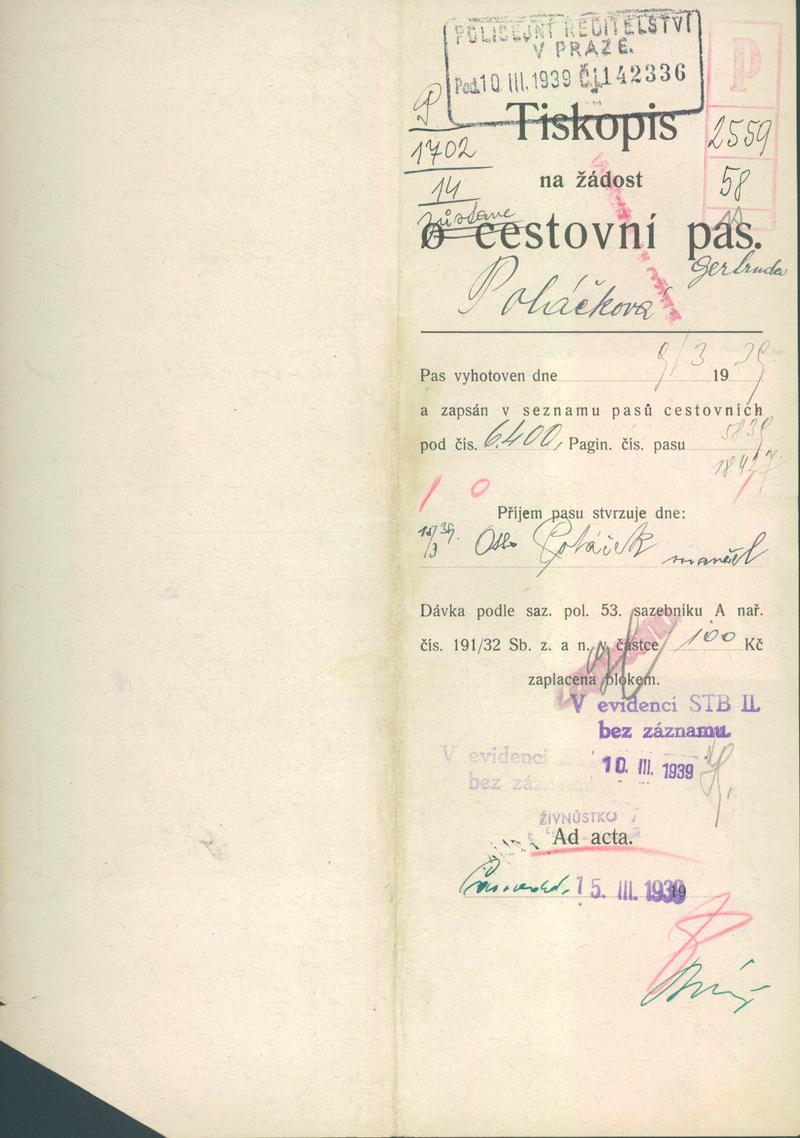 POLICEJNÍ ŘEDITELSTVÍ
V PRAZE.
Pod. 10. III. 1939 Č.j. 142336
P
P
1702
14
zůstane
2559
58
Tiskopis
na žádost
o cestovní pas.
Poláčková Gertruda
Pas vyhotoven dne 9/3 1939
a zapsán v seznamu pasů cestovních
pod čís. 6.400, Pagin. čís. pasu 5839
18427
1 0 1
Příjem pasu stvrzuje dne:
Otto Poláček manžel
Dávka podle saz. pol. 53. sazebníku A nař.
čís. 191/32 Sb. z. a n. v částce 100 Kč
zaplacena blokem.
V evidenci STB II.
bez záznamu.
V evidenci
bez
10. III. 1939
ŽIVNŮSTKO
Ad acta.
15. III. 1939 19